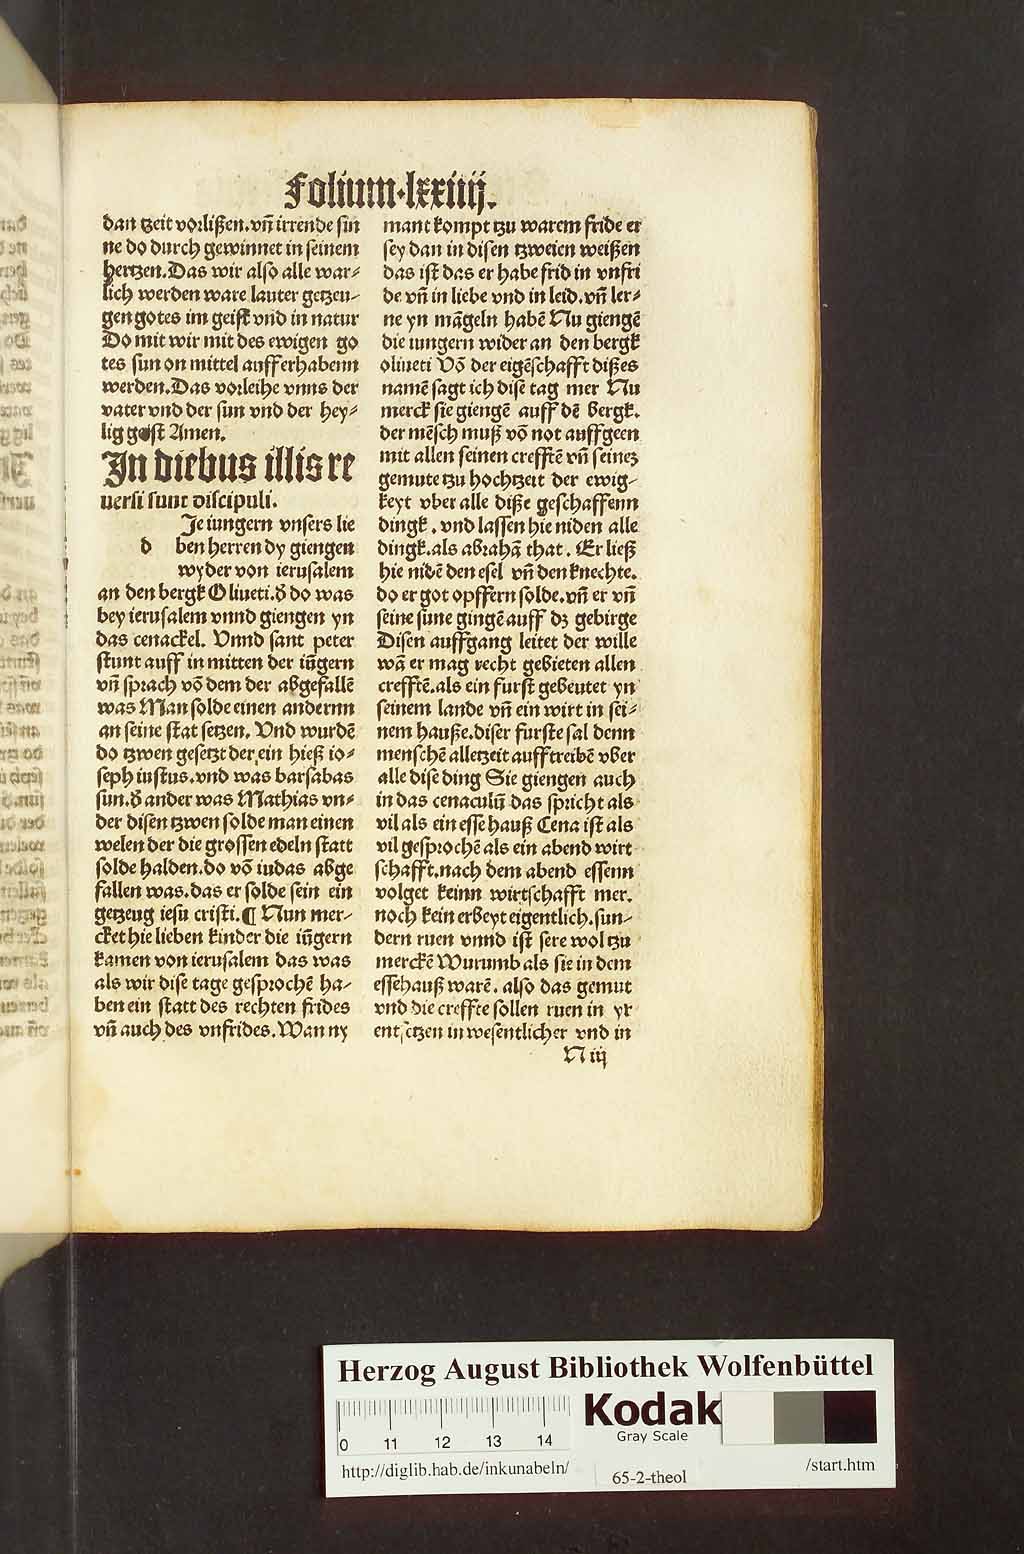 Folium·lxxiiij.
dan tzeit vorlißen.vñ irrende sin
ne do durch gewinnet in seinem
hertzen.Das wir also alle war⸗
lich werden ware lauter getzeu⸗
gen gotes im geist vnd in natur
Do mit wir mit des ewigen go
tes sun on mittel aufferhabenn
werden.Das vorleihe vnns der
vater vnd der sun vnd der hey⸗
lig gest Amen.
In diebus illis re
uersi sunt discipuli.
Je iungern vnsers lie
d ben herren dy giengen
wyder von ierusalem
an den bergk Oliueti.ð do was
bey ierusalem vnnd giengen yn
das cenackel. Vnnd sant peter
stunt auff in mitten der iũgern
vñ sprach võ dem der abgefallẽ
was Man solde einen andernn
an seine stat setzen. Vnd wurdẽ
do tzwen gesetzt der ein hieß io⸗
seph iustus.vnd was barsabas
sun.ð ander was Mathias vn⸗
der disen tzwen solde man einen
welen der die grossen edeln statt
solde halden.do võ iudas abge
fallen was.das er solde sein ein
getzeug iesu cristi.¶ Nun mer⸗
cket hie lieben kinder die iũgern
kamen von ierusalem das was
als wir dise tage gesprochẽ ha⸗
ben ein statt des rechten frides
vñ auch des vnfrides.Wan ny
mant kompt tzu warem fride er
sey dan in disen tzweien weißen
das ist das er habe frid in vnfri
de vñ in liebe vnd in leid.vñ ler⸗
ne yn mãgeln habẽ Nu giengẽ
die iungern wider an den bergk
oliueti Võ der eigẽschafft dißes
namẽ sagt ich dise tag mer Nu
merck sie giengẽ auff dẽ bergk.
der mẽsch muß võ not auffgeen
mit allen seinen crefftẽ vñ seinez
gemute tzu hochtzeit der ewig⸗
keyt vber alle diße geschaffenn
dingk. vnd lassen hie niden alle
dingk.als abrahã that. Er ließ
hie nidẽ den esel vñ den knechte.
do er got opffern solde.vñ er vñ
seine sune gingẽ auff dz gebirge
Disen auffgang leitet der wille
wã er mag recht gebieten allen
crefftẽ.als ein furst gebeutet yn
seinem lande vñ ein wirt in sei⸗
nem hauße.diser furste sal denn
menschẽ alletzeit aufftreibẽ vber
alle dise ding Sie giengen auch
in das cenaculũ das spricht als
vil als ein esse hauß Cena ist als
vil gesprochẽ als ein abend wirt
schafft.nach dem abend essenn
volget keinn wirtschafft mer.
noch kein erbeyt eigentlich.sun⸗
dern ruen vnnd ist sere wol tzu
merckẽ Wurumb als sie in dem
essehauß warẽ. also das gemut
vnd die creffte sollen ruen in yr
entsetzen in wesentlicher vnd in
N iij
Herzog August Bibliothek Wolfenbüttel
0 11 12 13 14
Kodak
Gray Scale
http://diglib.hab.de/inkunabeln/
65-2-theol
/start.htm